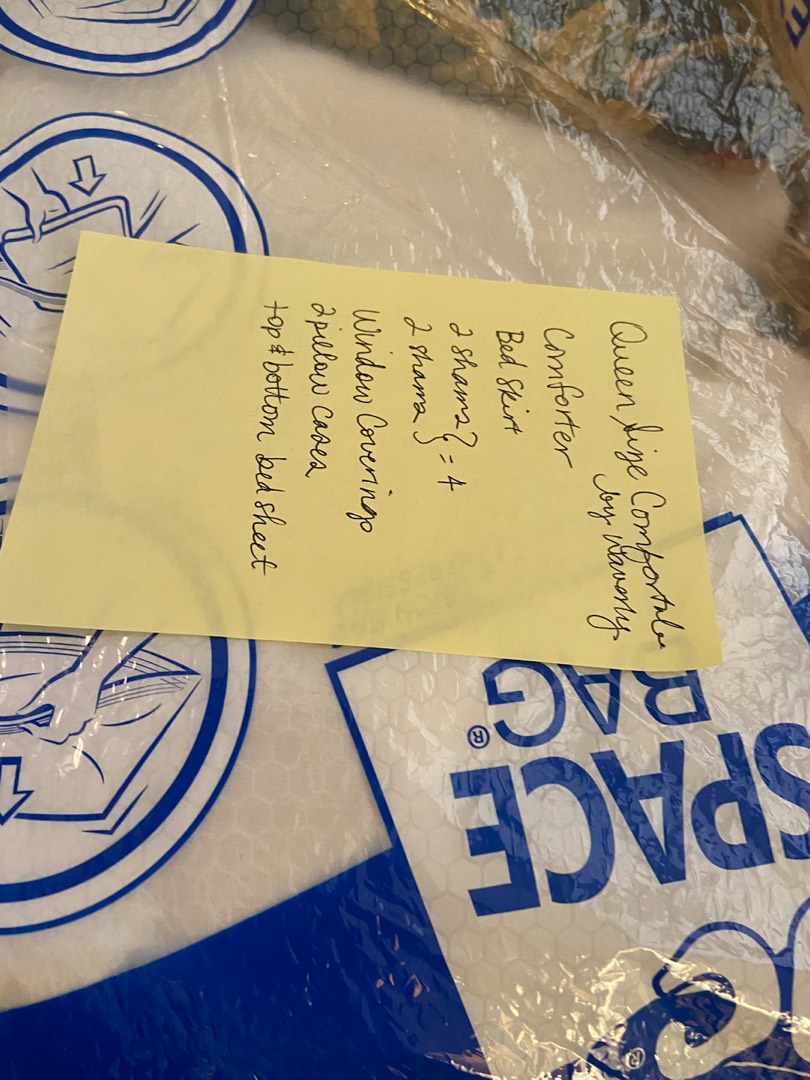 Queen Size Comfortable
by Waverly
Comforter
Bed Skirt
2 shams } = 4
2 shams
Window Coverings
2 pillow cases
top & bottom bed sheet
SPACE
BAG®
®